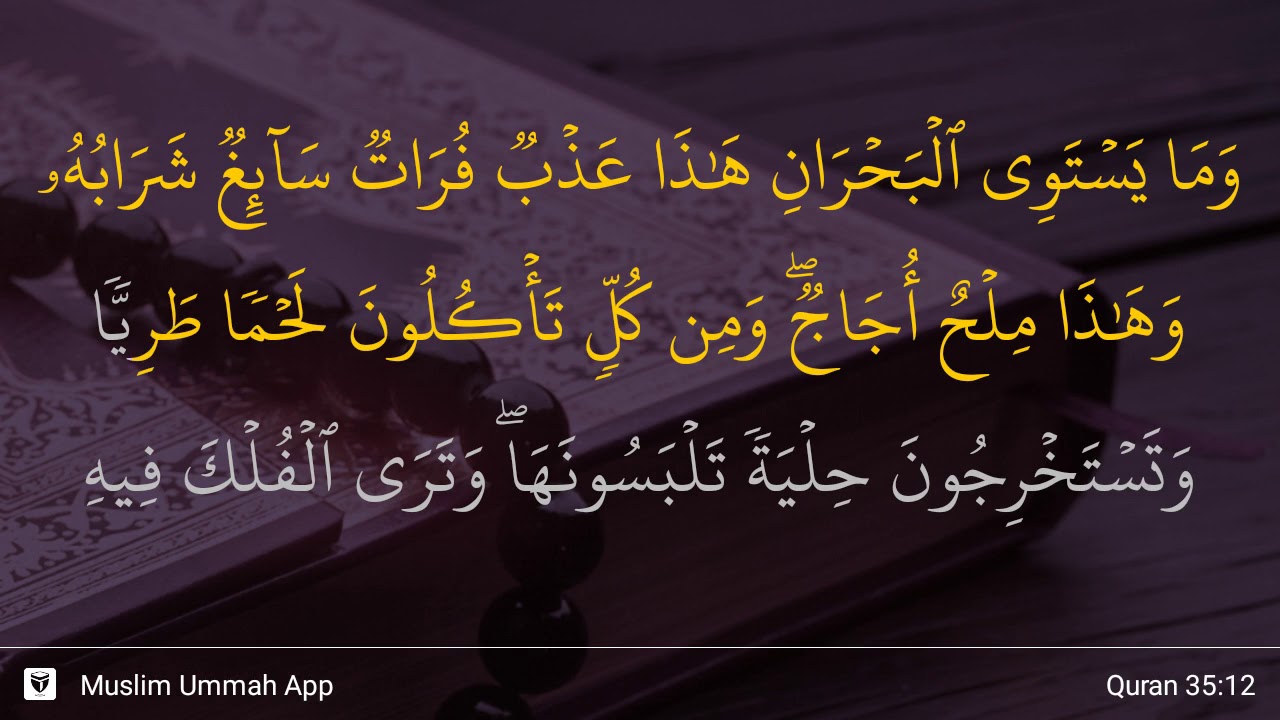 وَمَا يَسْتَوِى ٱلْبَحْرَانِ هَـٰذَا عَذْبٌ فُرَاتٌ سَآئِغٌ شَرَابُهُۥ
وَهَـٰذَا مِلْحٌ أُجَاجٌ ۖ وَمِن كُلٍّ تَأْكُلُونَ لَحْمًا طَرِيًّا
وَتَسْتَخْرِجُونَ حِلْيَةً تَلْبَسُونَهَا ۖ وَتَرَى ٱلْفُلْكَ فِيهِ
Muslim Ummah App
Quran 35:12